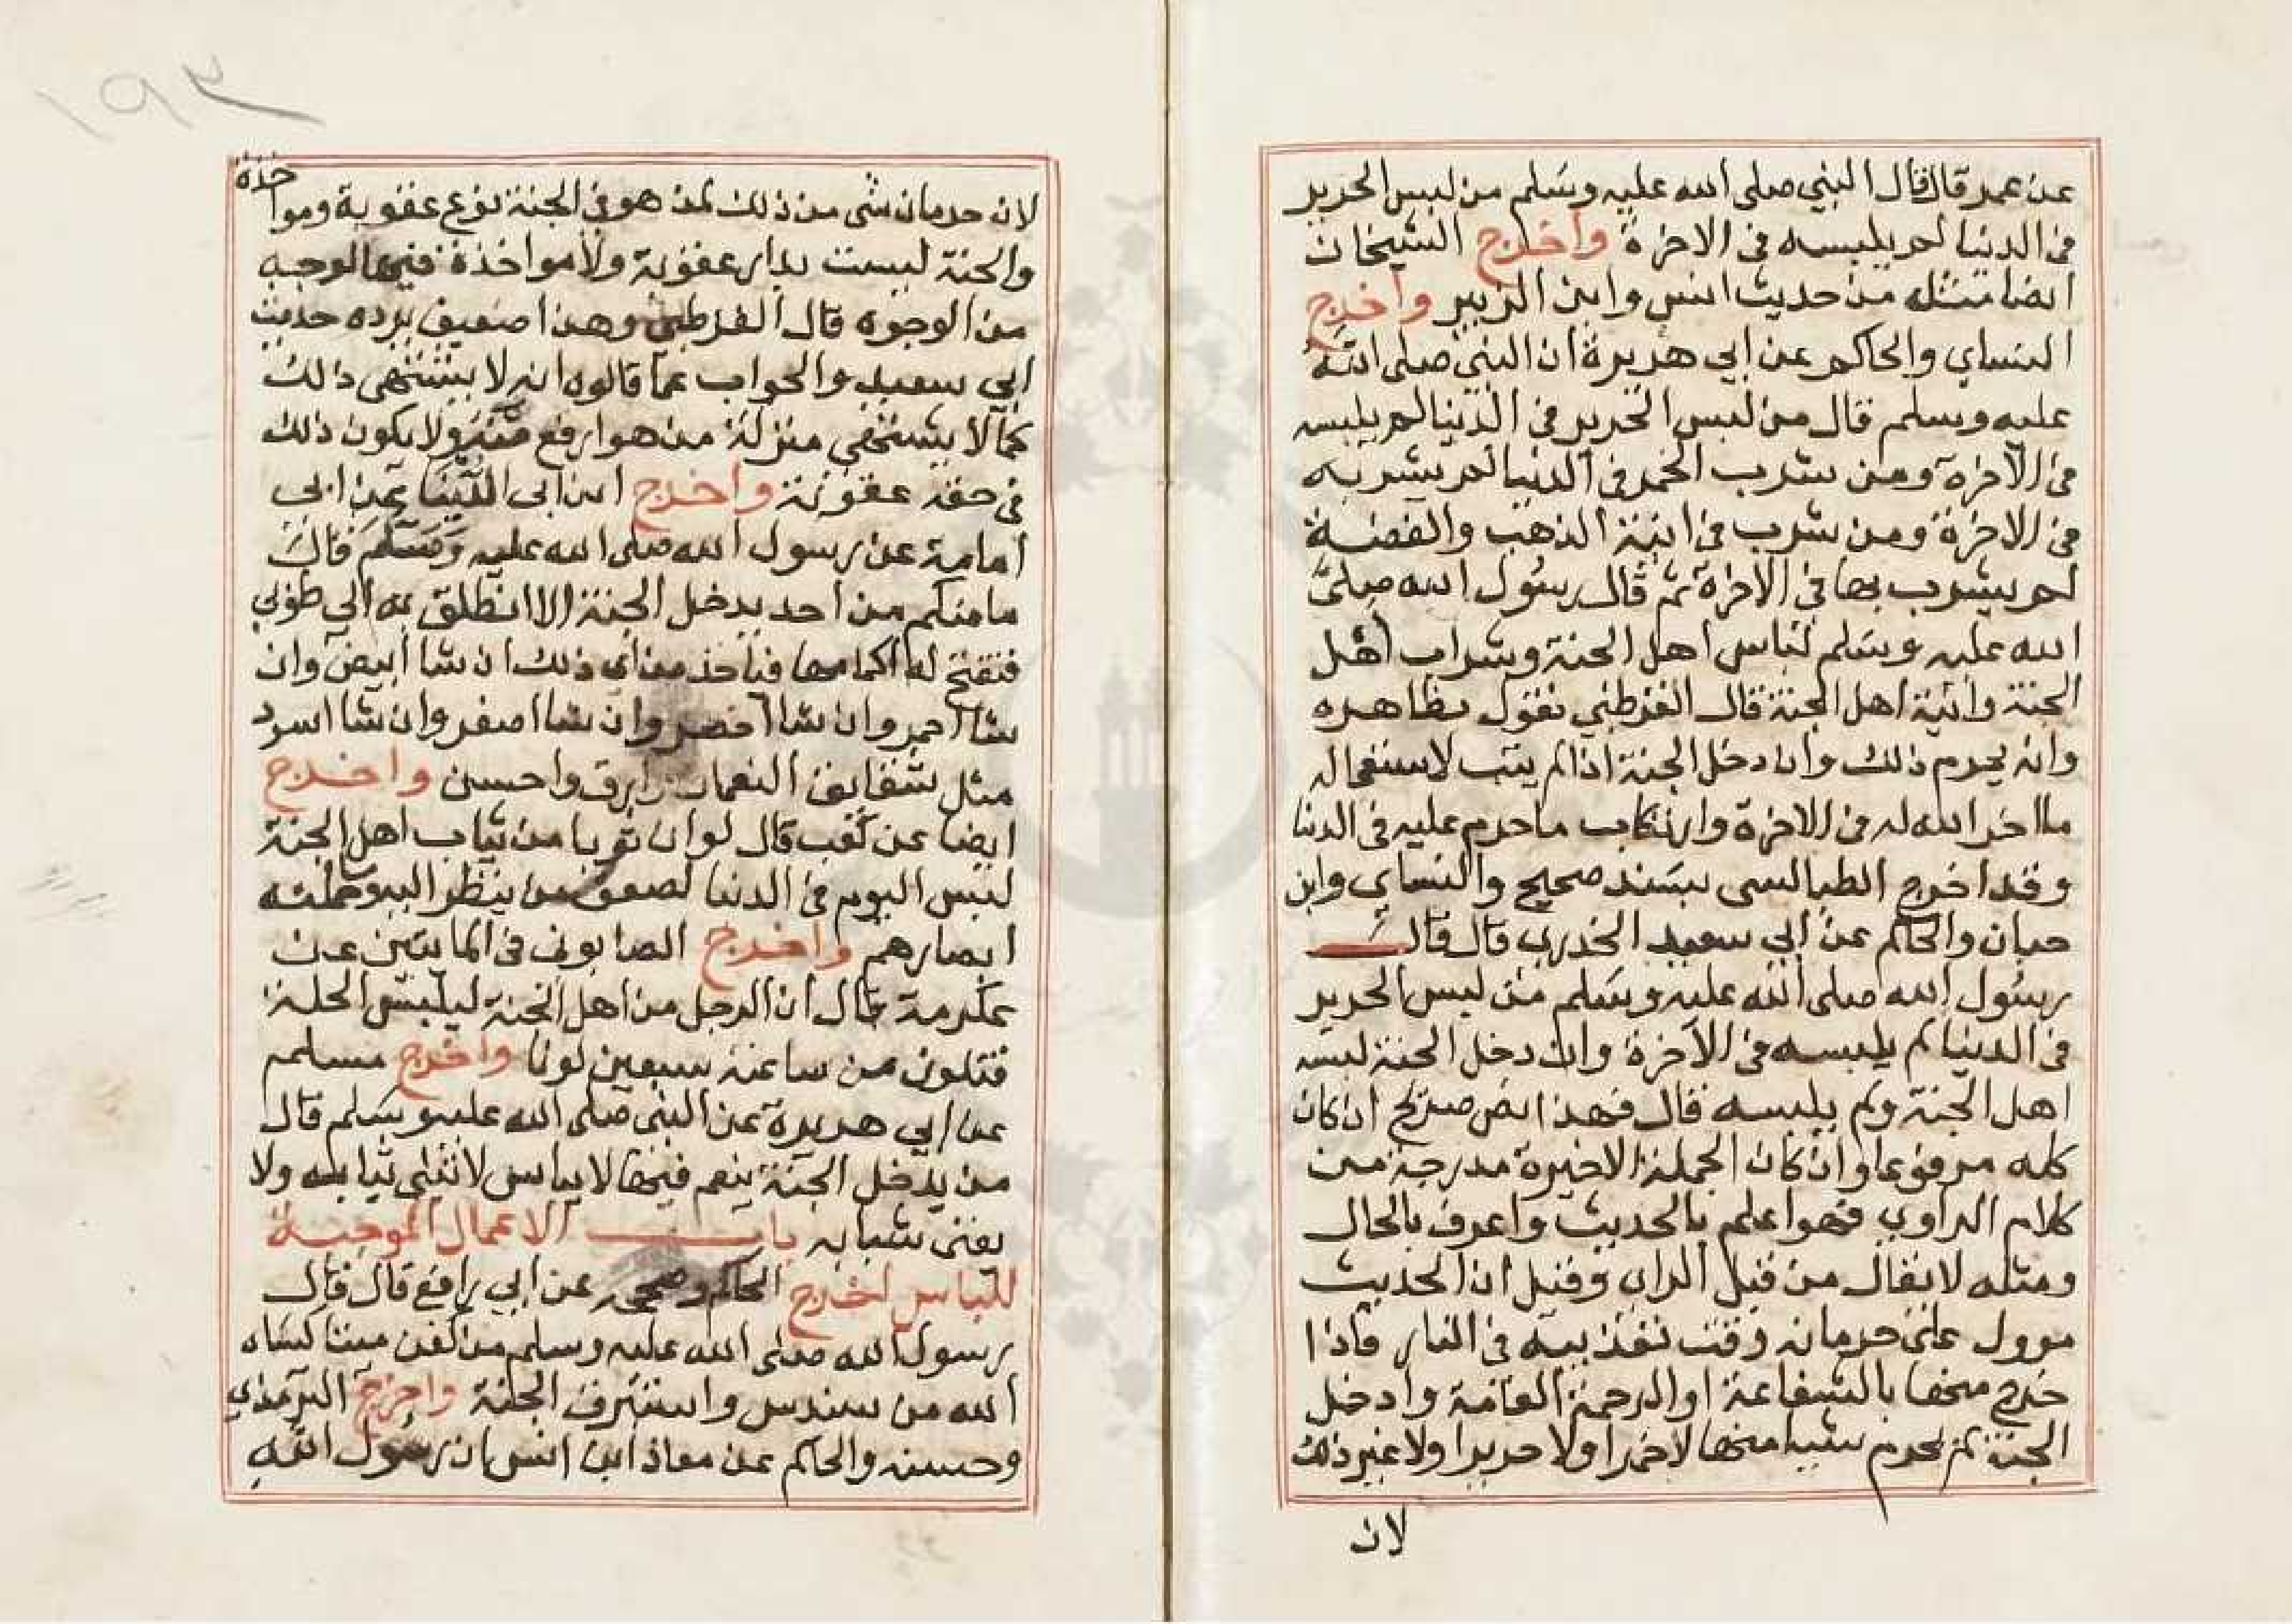 عن عمر قال قال النبي صلى الله عليه وسلم من لبس الحرير
في الدنيا لم يلبسه في الاخرة واخرج الشيخان
ايضا مثله من حديث انس وابن الزبير واخرج
النساي والحاكم عن ابي هريرة ان النبي صلى الله
عليه وسلم قال من لبس الحرير في الدنيا لم يلبسه
في الآخرة ومن شرب الخمر في الدنيا لم يشربه
في الاخرة ومن شرب في انية الذهب والفضة
لم يشرب بها في الاخرة ثم قال رسول الله صلى
الله عليه وسلم لباس اهل الجنة وشراب اهل
الجنة وانية اهل الجنة قال القرطبي نقول بظاهره
وانه يحرم ذلك وان دخل الجنة اذا لم يتب لاستعجاله
ما اخر الله له في الاخرة وارتكاب ما حرم عليه في الدنيا
وقد اخرج الطيالسي بسند صحيح والنساي وابن
حبان والحاكم عن ابي سعيد الخدري قال قال
رسول الله صلى الله عليه وسلم من لبس الحرير
في الدنيا لم يلبسه في الآخرة وان دخل الجنة لبسه
اهل الجنة ولم يلبسه قال فهذا نص صريح ان كان
كله مرفوعا وان كان الجملة الاخيرة مدرجة من
كلام الراوي فهو اعلم بالحديث واعرف بالحال
ومثله لا يقال من قبل الراي وقيل ان الحديث
موول على حرمانه وقت تعذيبه في النار فاذا
خرج منها بالشفاعة او الرحمة العامة وادخل
الجنة لم يحرم شيا منها لا خمرا ولا حريرا ولا غير ذلك
لان
١٩٢
لان حرمان شي من ذلك لمن هو في الجنة نوع عقوبة وموا
خذة
والجنة ليست بدار عقوبة ولا مواخذة فيها لوجه
من الوجوه قال القرطبي وهذا ضعيف يرده حديث
ابي سعيد والجواب عما قالوه انه لا يشتهي ذلك
كما لا يشتهي منزلة من هو ارفع منه ولا يكون ذلك
في حقه عقوبة واخرج ابن ابي الدنيا عن ابي
امامة عن رسول الله صلى الله عليه وسلم قال
ما منكم من احد يدخل الجنة الا انطلق به الى طوبى
فتفتح له اكمامها فياخذ من اي ذلك ان شا ابيض وان
شا احمر وان شا اخضر وان شا اصفر وان شا اسود
مثل شقايق النعمان وارق واحسن واخرج
ايضا عن كعب قال لو ان ثوبا من ثياب اهل الجنة
لبس اليوم في الدنيا لصعق من ينظر اليه وحملته
ابصارهم واخرج الصابوني في المايتين عن
عكرمة قال ان الرجل من اهل الجنة ليلبس الحلة
فتتلون من ساعته سبعين لونا واخرج مسلم
عن ابي هريرة عن النبي صلى الله عليه وسلم قال
من يدخل الجنة ينعم فيها لا يباس لا تبلى ثيابه ولا
يفنى شبابه باب الاعمال الموجبة
للباس اخرج الحاكم وصححه عن ابي رافع قال قال
رسول الله صلى الله عليه وسلم من كفن ميتا كساه
الله من سندس واستبرق الجنة واخرج الترمذي
وحسنه والحاكم عن معاذ ابن انس ان رسول الله